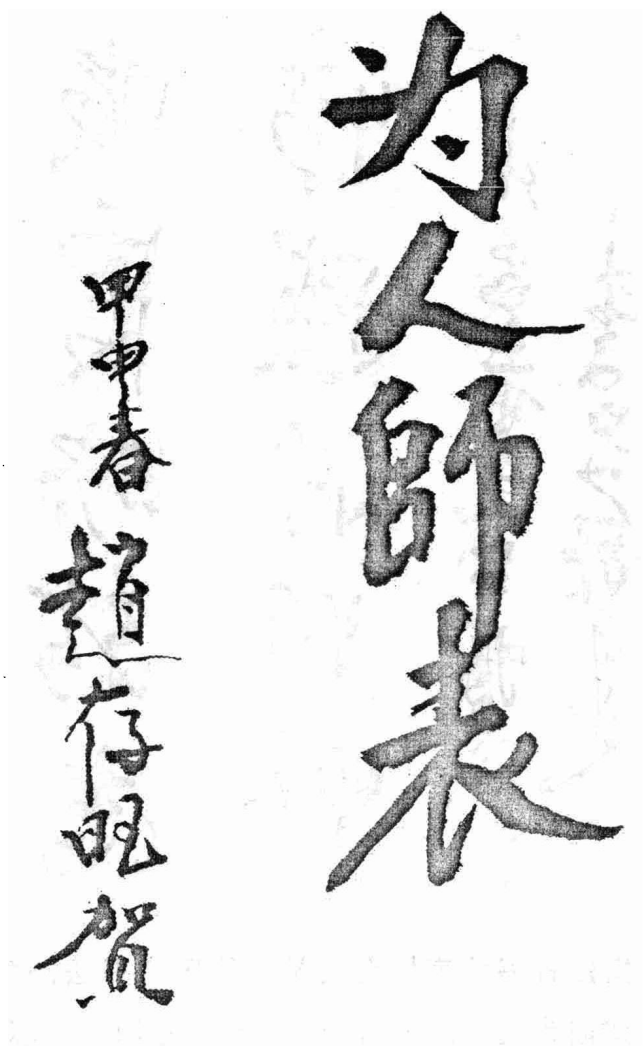 为人師表
甲申春趙存旺賀